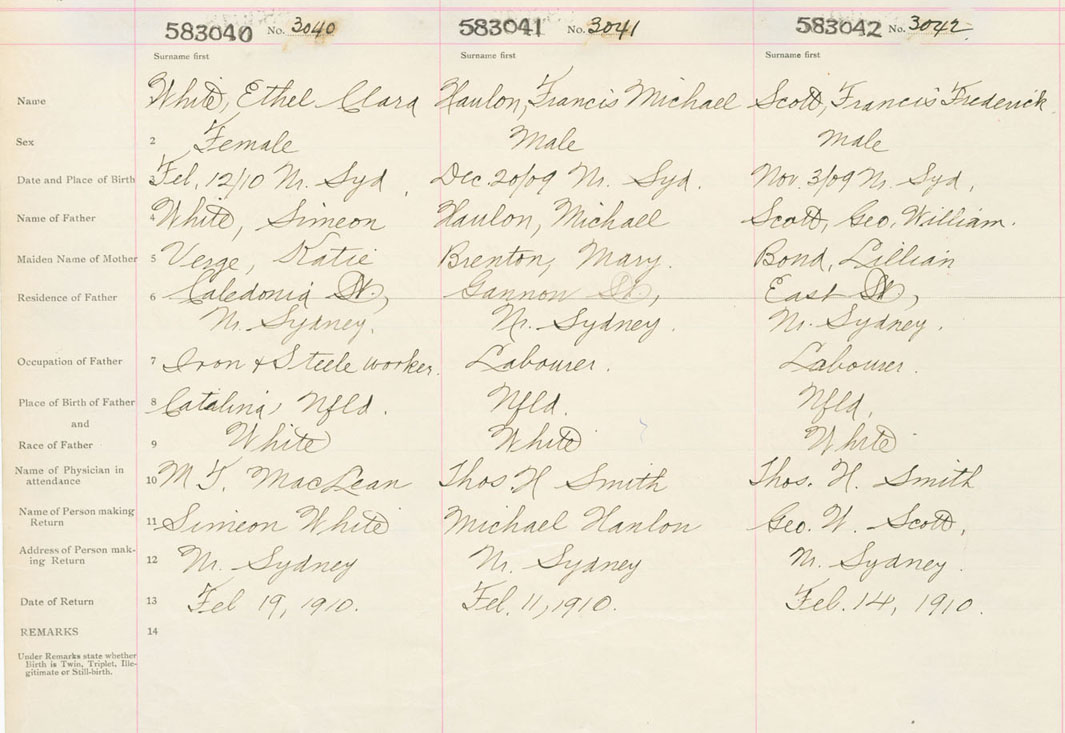 583040 No. 3040 583041 No. 3041 583042 No. 3042
Surname first Surname first Surname first
Name White, Ethel Clara Hanlon, Francis Michael Scott, Francis Frederick
Sex 2 Female Male Male
Date and Place of Birth 3 Feb, 12/10 Nr. Syd, Dec. 20/09 Nr. Syd. Nov. 3/09 Nr. Syd,
Name of Father 4 White, Simeon Hanlon, Michael Scott, Geo. William.
Maiden Name of Mother 5 Verge, Katie Brenton, Mary. Bond, Lillian
Residence of Father 6 Caledonia St., Gannon St, East St,
Nr. Sydney. Nr. Sydney. Nr. Sydney.
Occupation of Father 7 Iron & Steele worker. Labourer. Labourer.
Place of Birth of Father 8 Catalina, Nfld. Nfld. Nfld,
and
Race of Father 9 White White White
Name of Physician in
attendance 10 M T. MacLean Thos H Smith Thos. H. Smith
Name of Person making
Return 11 Simeon White Michael Hanlon Geo. W. Scott,
Address of Person mak-
ing Return 12 Nr. Sydney Nr. Sydney Nr. Sydney.
Date of Return 13 Feb 19, 1910. Feb. 11, 1910. Feb. 14, 1910.
REMARKS 14
Under Remarks state whether
Birth is Twin, Triplet, Ille-
gitimate or Still-birth.